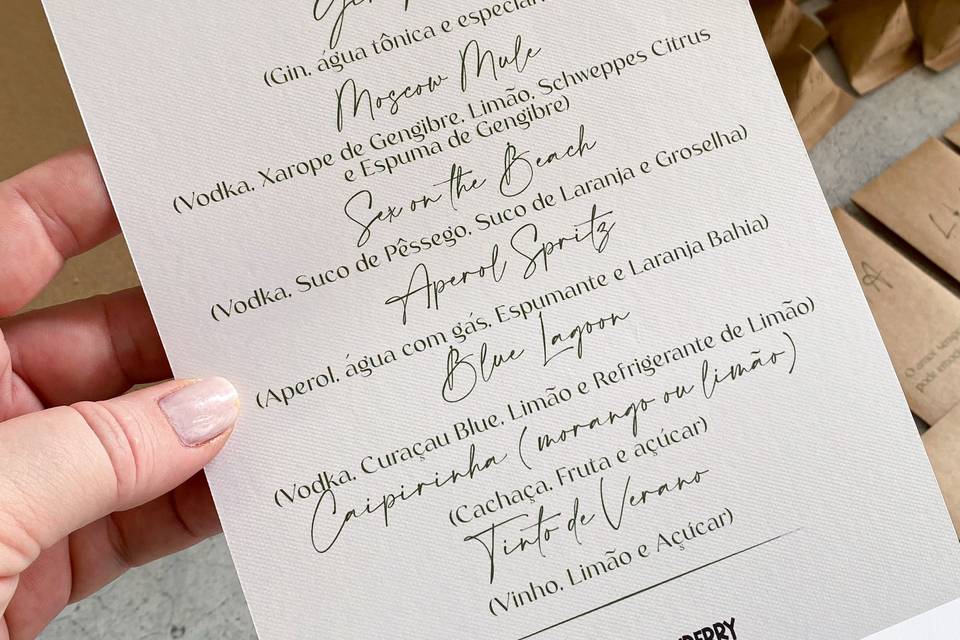 (Gin, água tônica e
Moscow Mule
(Vodka, Xarope de Gengibre, Limão, Schweppes Citrus
e Espuma de Gengibre)
Sex on the Beach
(Vodka, Suco de Pêssego, Suco de Laranja e Groselha)
Aperol Spritz
(Aperol, água com gás, Espumante e Laranja Bahia)
Blue Lagoon
(Vodka, Curaçau Blue, Limão e Refrigerante de Limão)
Caipirinha (morango ou limão)
(Cachaça, Fruta e açúcar)
Tinto de Verano
(Vinho, Limão e Açúcar)
A
O amor
pode